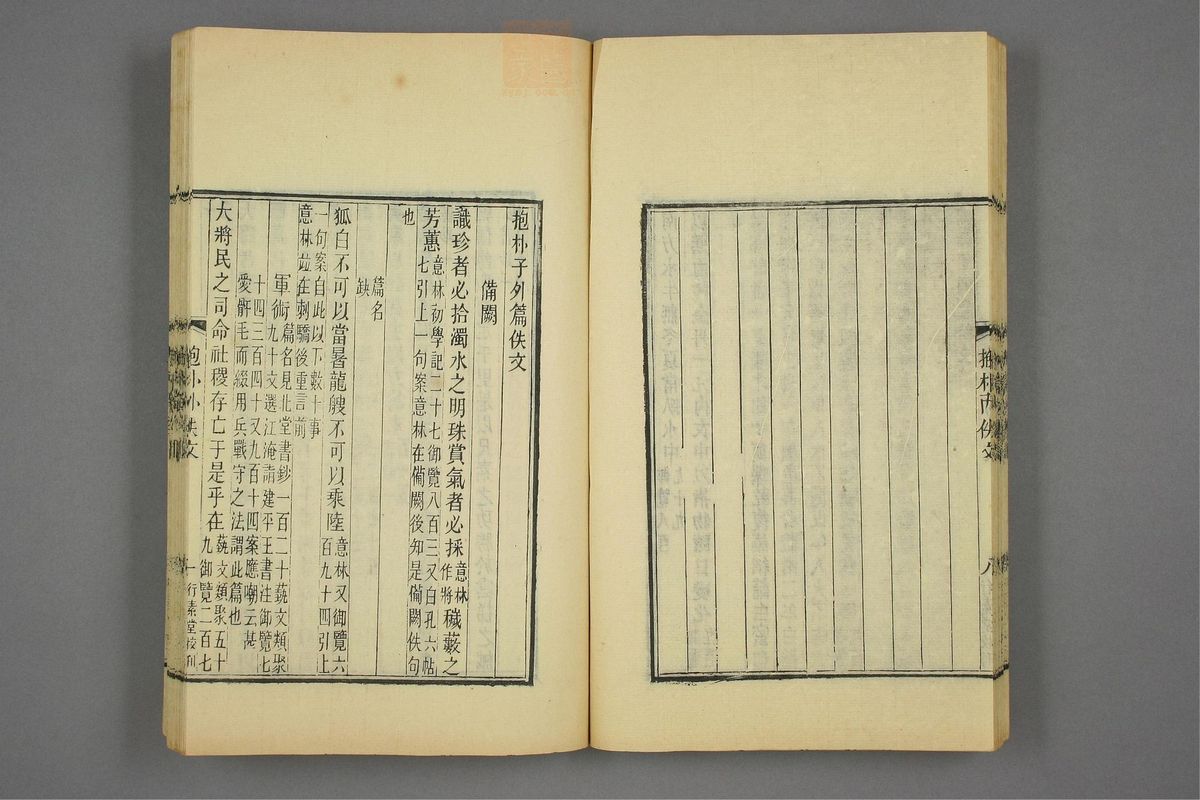 抱朴内佚文
八
抱朴子外篇佚文
備闕
識珍者必拾濁水之明珠賞氣者必採意林作將穢藪之
芳蕙意林初學記二十七御覽八百三又白孔六帖
七引上一句案意林在備闕後知是備闕佚句
也
篇名
缺
狐白不可以當暑龍艘不可以乘陸意林又御覽六
百九十四引上
一句案自此以下數十事
意林竝在刺驕後重言前
軍術篇名見北堂書鈔一百二十藝文類聚
九十文選江淹詣建平王書注御覽七
十四三百四十又九百十四案應嘲云甚
愛骭毛而綴用兵戰守之法謂此篇也
大將民之司命社稷存亡于是乎在藝文類聚五十
九御覽二百七
佚文
一
行素堂校刊